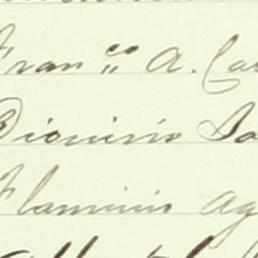 Fran.co A. Ca
Dioninio Sa
Flaminio Ag